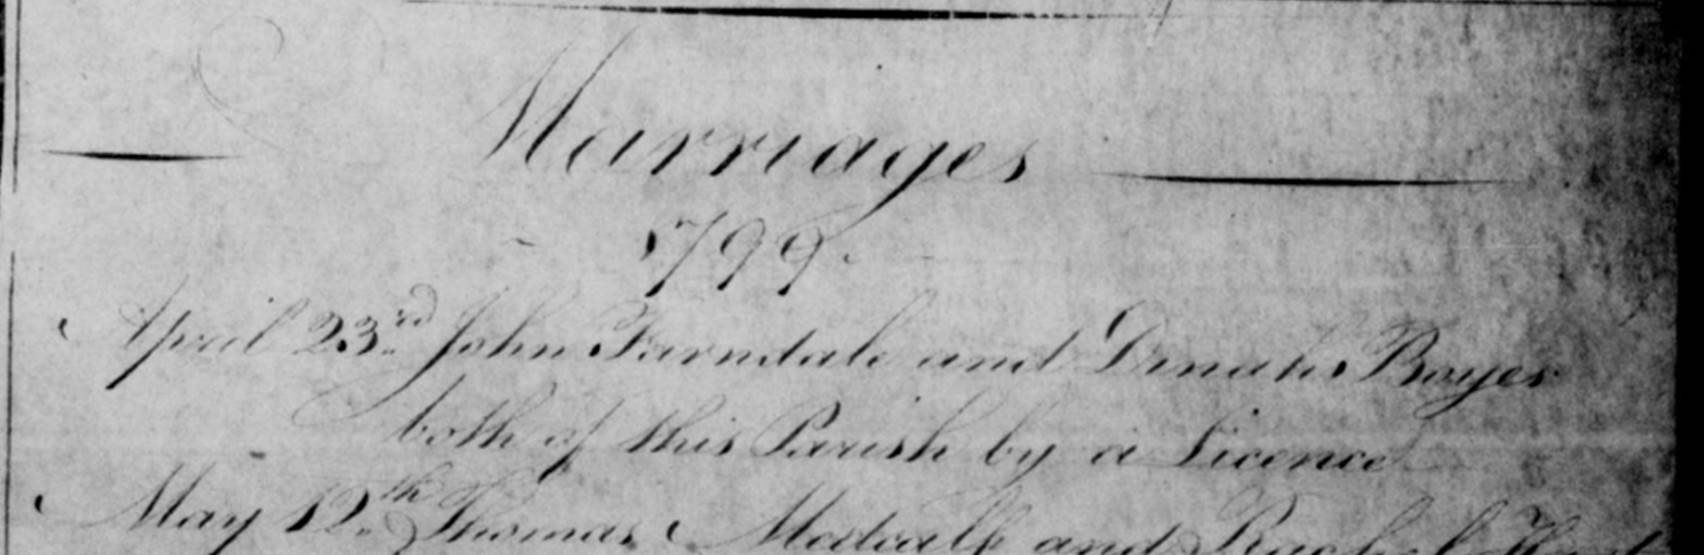 Marriages
1799.
April 23rd John Farndale and Dinah Boyes
both of this Parish by a Licence
May 12th Thomas Medcalf and Rachel